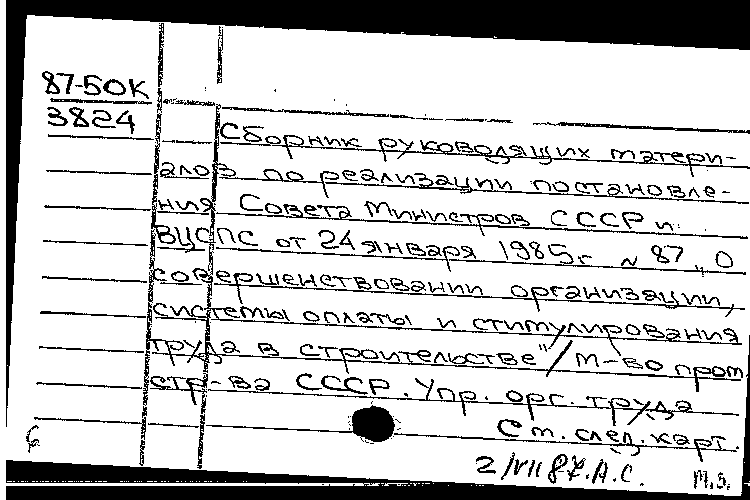 87-50К
3824
Сборник руководящих матери-
алов по реализации постановле-
ния Совета Министров СССР и
ВЦСПС от 24 января 1985г. N 87 „О
совершенствовании организации,
системы оплаты и стимулирования
труда в строительстве"/М-во пром.
стр-ва СССР. Упр. орг. труда
См. след. карт.
2/VII 87. А.С. М.З.